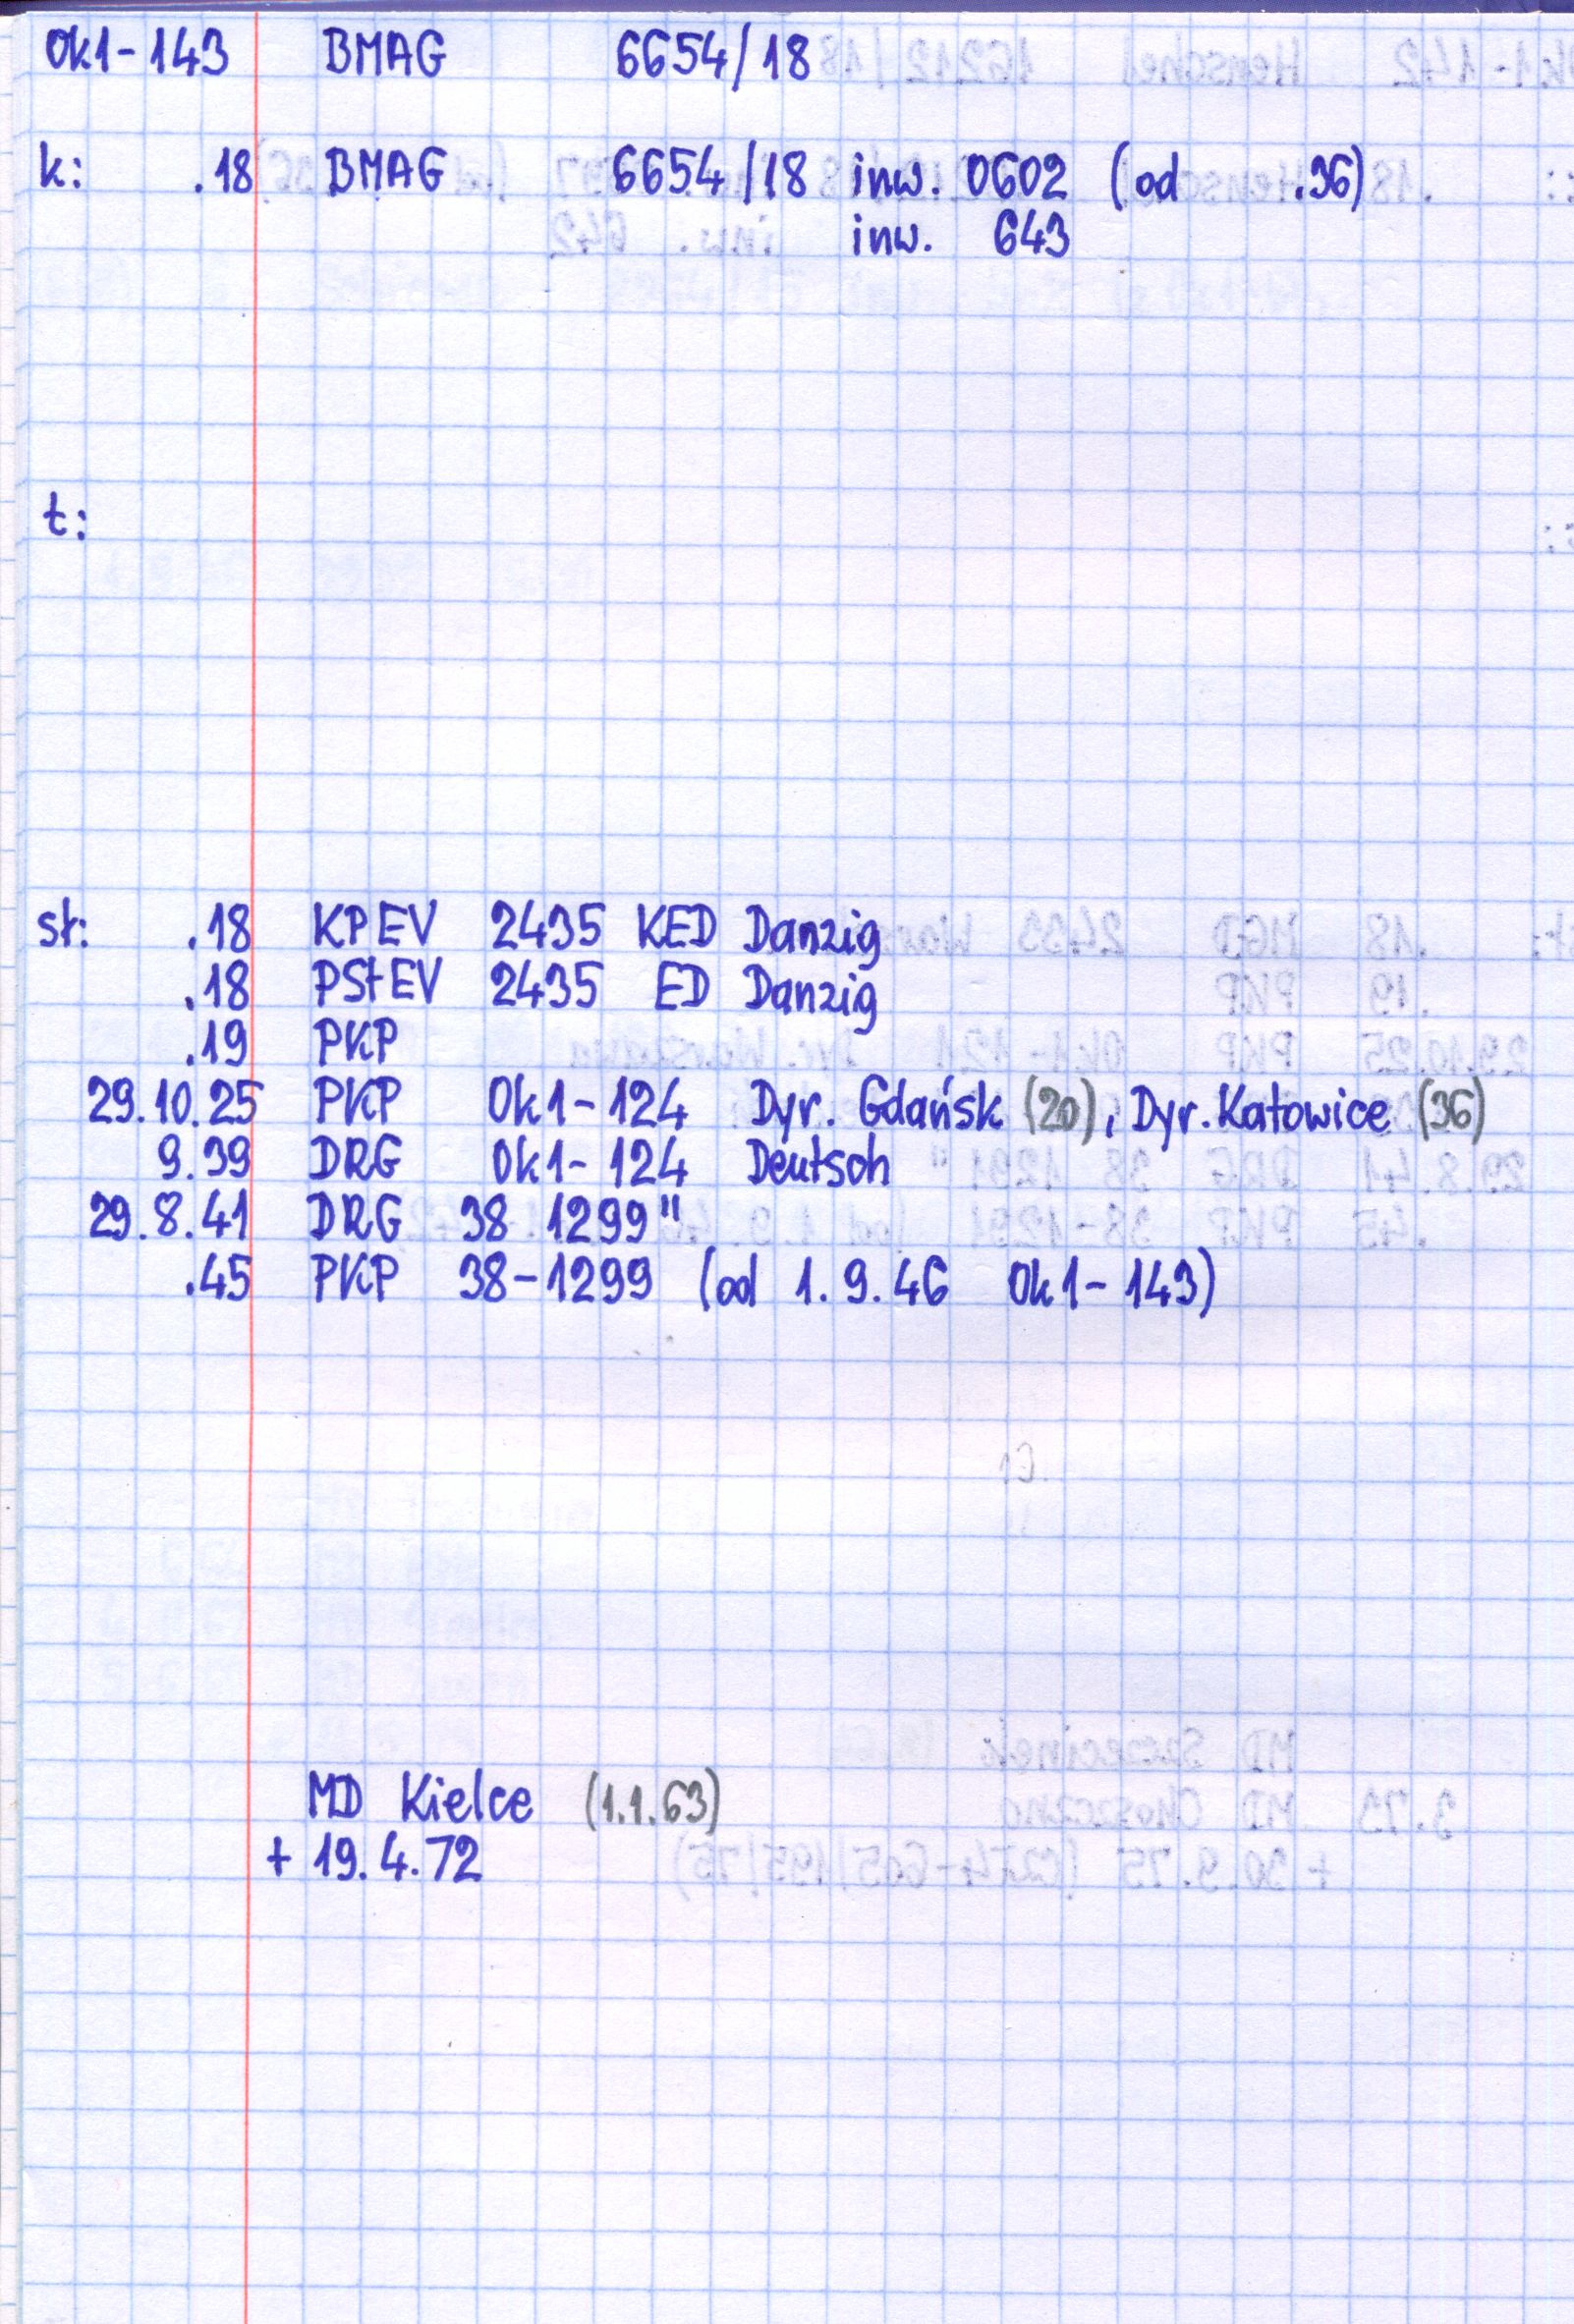 Ok1-143 BMAG 6654/18
k: .18 BMAG 6654/18 inw. 0602 (od .36)
inw. 643
t:
st: .18 KPEV 2435 KED Danzig
.18 PStEV 2435 ED Danzig
.19 PKP
29.10.25 PKP Ok1-124 Dyr. Gdańsk (20), Dyr. Katowice (36)
9.39 DRG Ok1-124 Deutsch
29.8.41 DRG 38 1299"
.45 PKP 38-1299 (od 1.9.46 Ok1-143)
MD Kielce (1.1.63)
+ 19.4.72